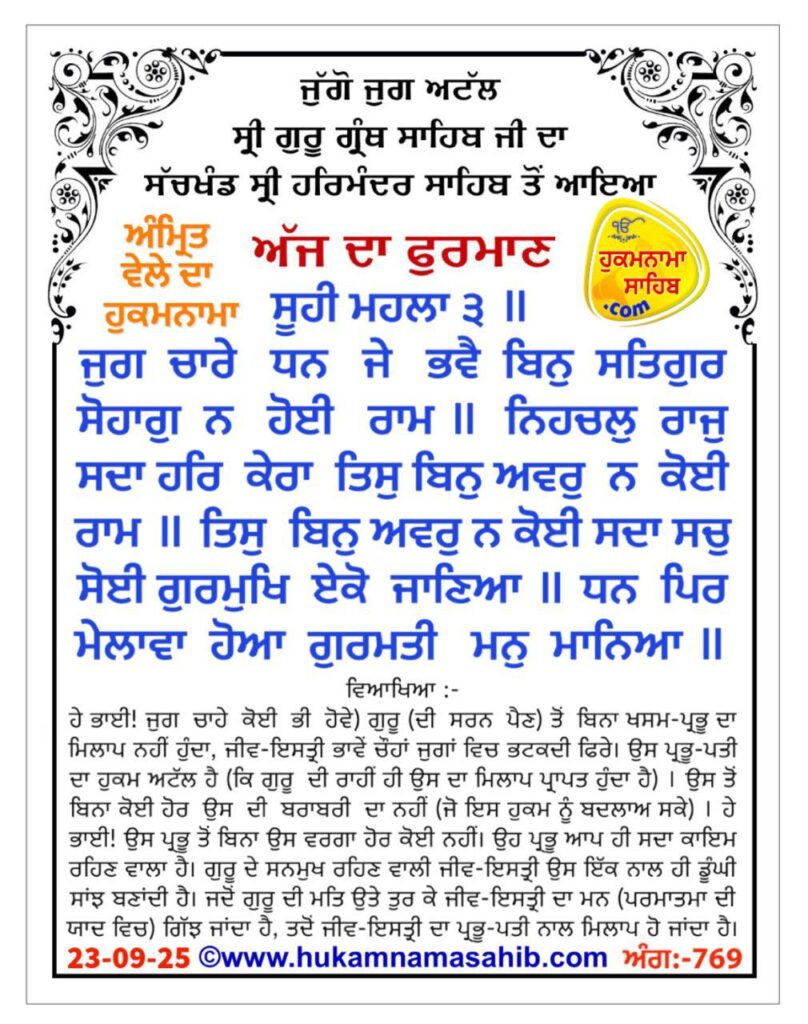 ਜੁੱਗੋ ਜੁਗ ਅਟੱਲ
ਸ੍ਰੀ ਗੁਰੂ ਗ੍ਰੰਥ ਸਾਹਿਬ ਜੀ ਦਾ
ਸੱਚਖੰਡ ਸ੍ਰੀ ਹਰਿਮੰਦਰ ਸਾਹਿਬ ਤੋਂ ਆਇਆ
ਅੰਮ੍ਰਿਤ
ਵੇਲੇ ਦਾ
ਹੁਕਮਨਾਮਾ
ਅੱਜ ਦਾ ਫੁਰਮਾਣ
ੴ
ਹੁਕਮਨਾਮਾ
ਸਾਹਿਬ
.com
ਸੂਹੀ ਮਹਲਾ ੩ ॥
ਜੁਗ ਚਾਰੇ ਧਨ ਜੇ ਭਵੈ ਬਿਨੁ ਸਤਿਗੁਰ
ਸੋਹਾਗੁ ਨ ਹੋਈ ਰਾਮ ॥ ਨਿਹਚਲੁ ਰਾਜੁ
ਸਦਾ ਹਰਿ ਕੇਰਾ ਤਿਸੁ ਬਿਨੁ ਅਵਰੁ ਨ ਕੋਈ
ਰਾਮ ॥ ਤਿਸੁ ਬਿਨੁ ਅਵਰੁ ਨ ਕੋਈ ਸਦਾ ਸਚੁ
ਸੋਈ ਗੁਰਮੁਖਿ ਏਕੋ ਜਾਣਿਆ ॥ ਧਨ ਪਿਰ
ਮੇਲਾਵਾ ਹੋਆ ਗੁਰਮਤੀ ਮਨੁ ਮਾਨਿਆ ॥
ਵਿਆਖਿਆ :-
ਹੇ ਭਾਈ! ਜੁਗ ਚਾਹੇ ਕੋਈ ਭੀ ਹੋਵੇ) ਗੁਰੂ (ਦੀ ਸਰਨ ਪੈਣ) ਤੋਂ ਬਿਨਾ ਖਸਮ-ਪ੍ਰਭੂ ਦਾ
ਮਿਲਾਪ ਨਹੀਂ ਹੁੰਦਾ, ਜੀਵ-ਇਸਤ੍ਰੀ ਭਾਵੇਂ ਚੌਹਾਂ ਜੁਗਾਂ ਵਿਚ ਭਟਕਦੀ ਫਿਰੇ। ਉਸ ਪ੍ਰਭੂ-ਪਤੀ
ਦਾ ਹੁਕਮ ਅਟੱਲ ਹੈ (ਕਿ ਗੁਰੂ ਦੀ ਰਾਹੀਂ ਹੀ ਉਸ ਦਾ ਮਿਲਾਪ ਪ੍ਰਾਪਤ ਹੁੰਦਾ ਹੈ) । ਉਸ ਤੋਂ
ਬਿਨਾ ਕੋਈ ਹੋਰ ਉਸ ਦੀ ਬਰਾਬਰੀ ਦਾ ਨਹੀਂ (ਜੋ ਇਸ ਹੁਕਮ ਨੂੰ ਬਦਲਾਅ ਸਕੇ) । ਹੇ
ਭਾਈ! ਉਸ ਪ੍ਰਭੂ ਤੋਂ ਬਿਨਾ ਉਸ ਵਰਗਾ ਹੋਰ ਕੋਈ ਨਹੀਂ। ਉਹ ਪ੍ਰਭੂ ਆਪ ਹੀ ਸਦਾ ਕਾਇਮ
ਰਹਿਣ ਵਾਲਾ ਹੈ। ਗੁਰੂ ਦੇ ਸਨਮੁਖ ਰਹਿਣ ਵਾਲੀ ਜੀਵ-ਇਸਤ੍ਰੀ ਉਸ ਇੱਕ ਨਾਲ ਹੀ ਡੂੰਘੀ
ਸਾਂਝ ਬਣਾਂਦੀ ਹੈ। ਜਦੋਂ ਗੁਰੂ ਦੀ ਮਤਿ ਉਤੇ ਤੁਰ ਕੇ ਜੀਵ-ਇਸਤ੍ਰੀ ਦਾ ਮਨ (ਪਰਮਾਤਮਾ ਦੀ
ਯਾਦ ਵਿਚ) ਗਿੱਝ ਜਾਂਦਾ ਹੈ, ਤਦੋਂ ਜੀਵ-ਇਸਤ੍ਰੀ ਦਾ ਪ੍ਰਭੂ-ਪਤੀ ਨਾਲ ਮਿਲਾਪ ਹੋ ਜਾਂਦਾ ਹੈ।
23-09-25 ©www.hukamnamasahib.com ਅੰਗ:-769